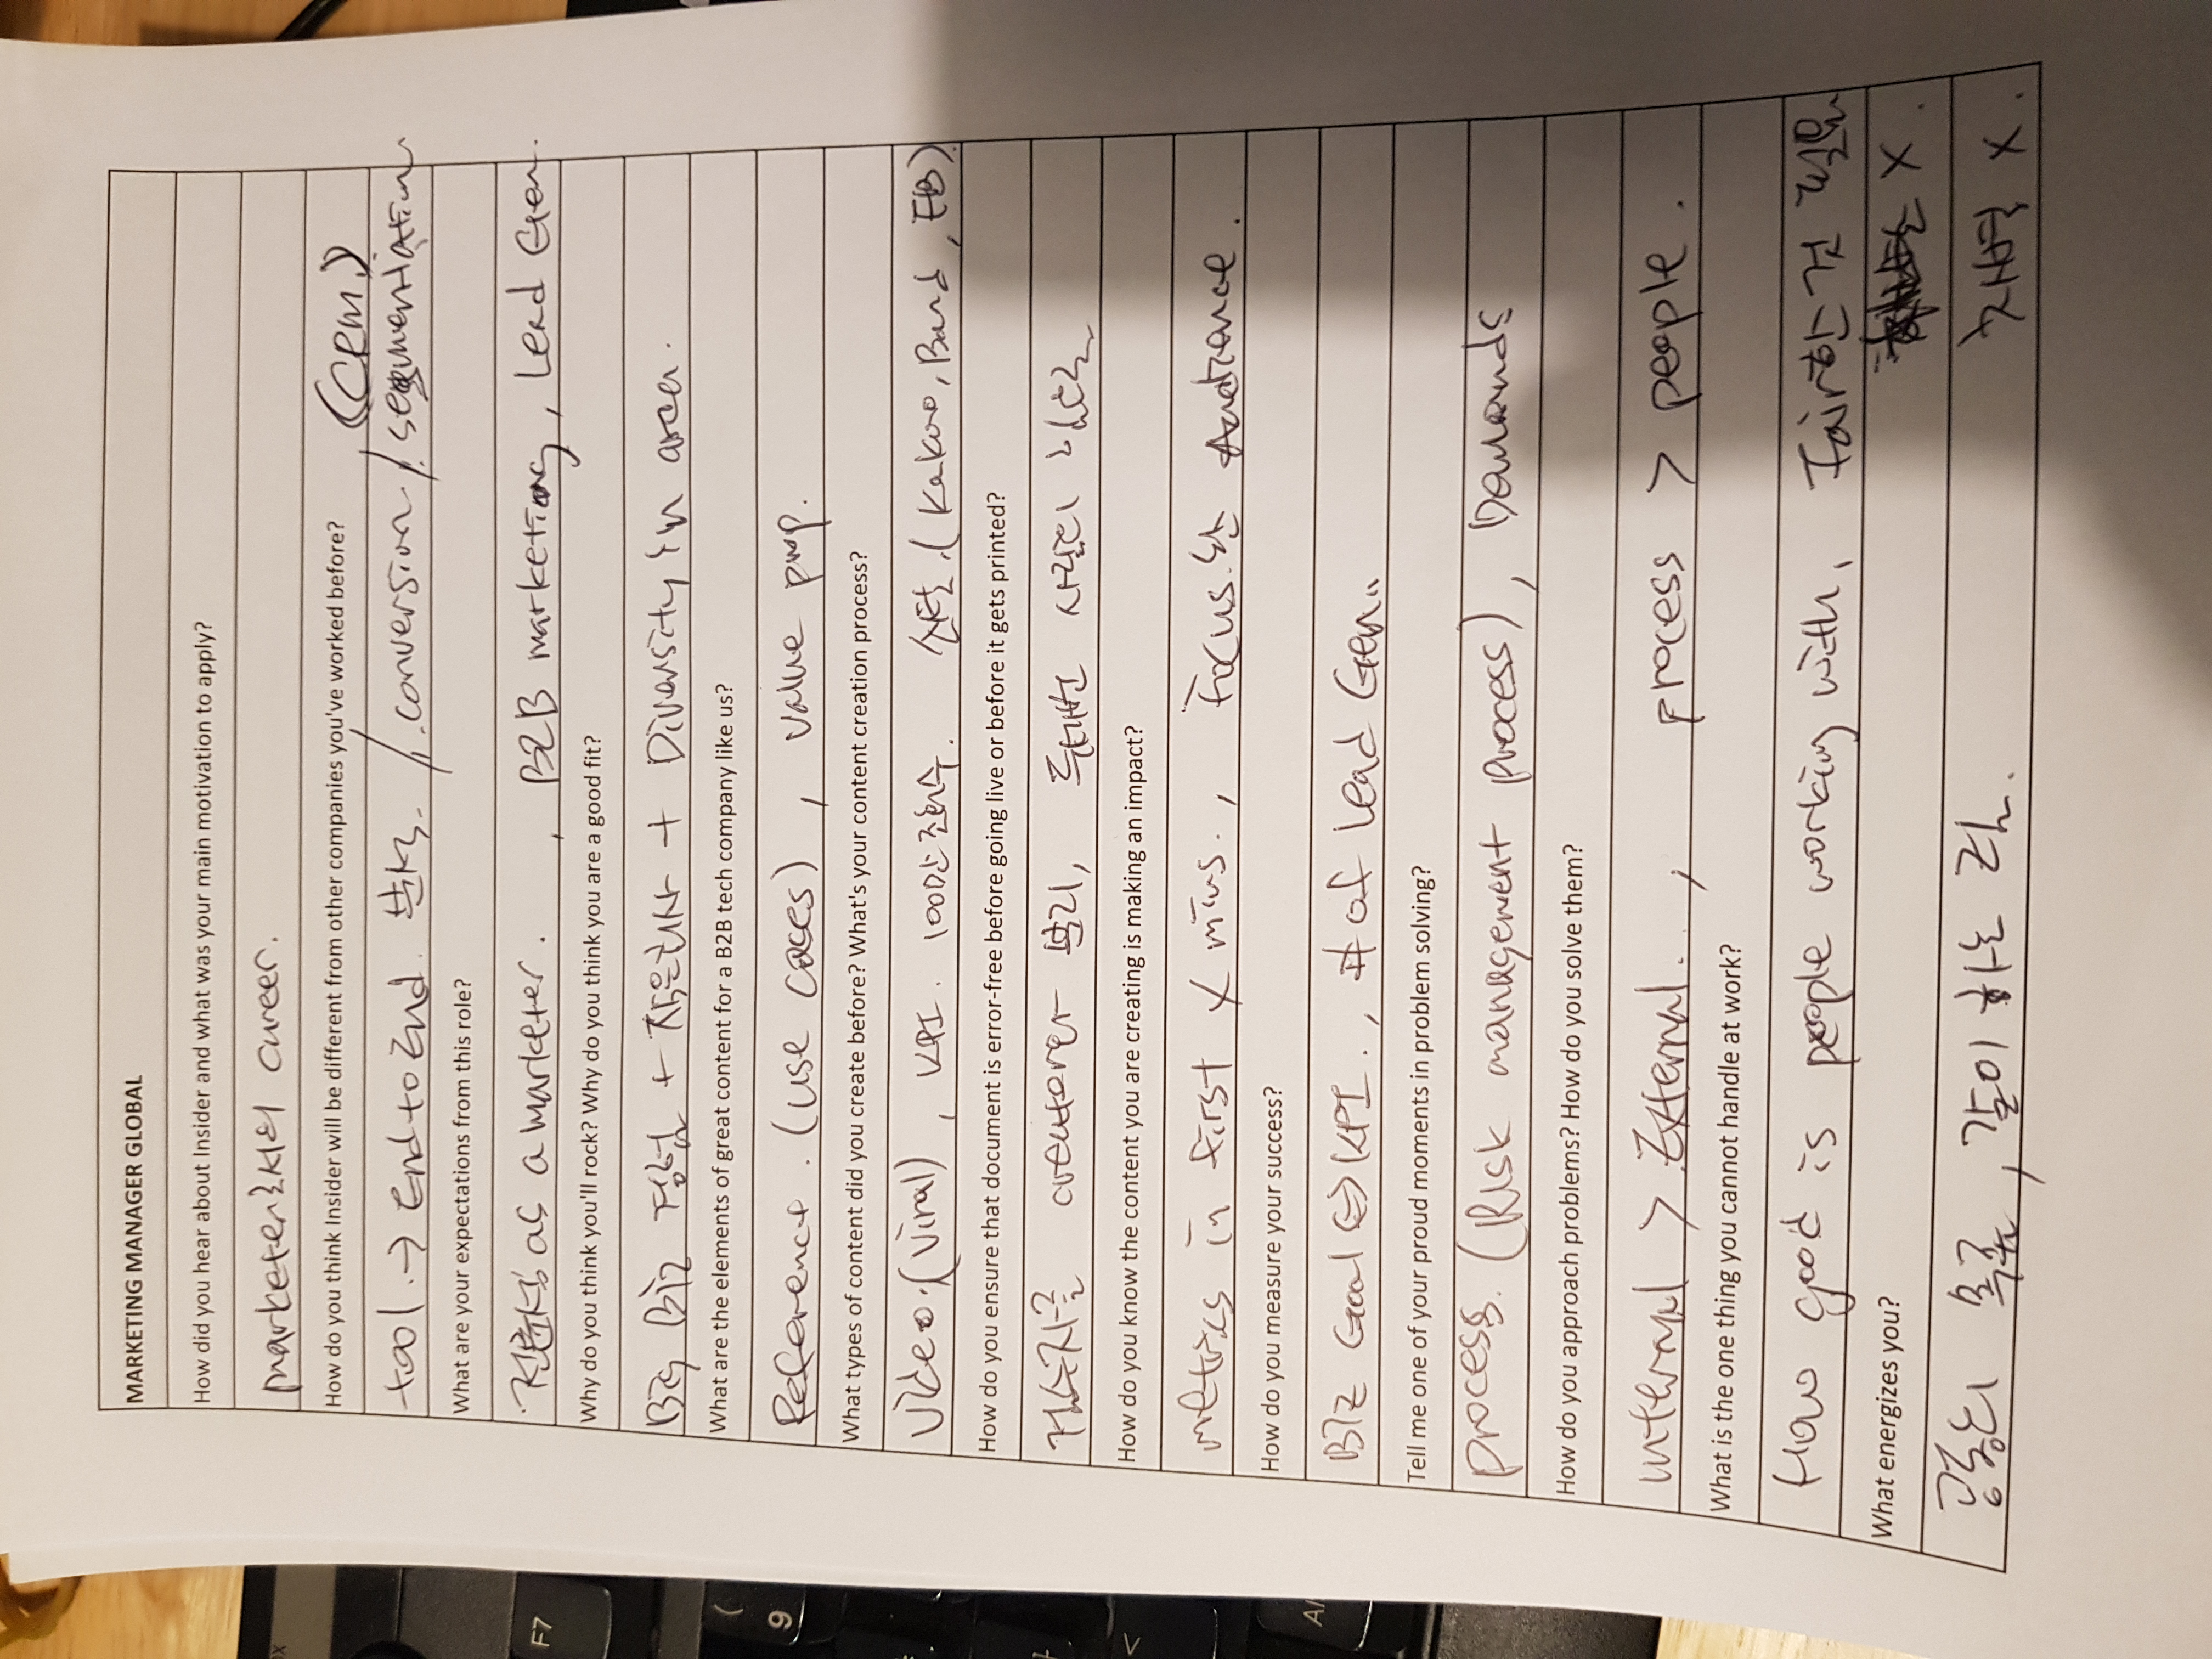 MARKETING MANAGER GLOBAL
How did you hear about Insider and what was your main motivation to apply?
marketer로서의 career.
How do you think Insider will be different from other companies you've worked before?
(CRM)
tool. → End to End. 분석. /. conversion /. segmentation
What are your expectations from this role?
as a marketer. , B2B marketing, Lead Gen.
Why do you think you'll rock? Why do you think you are a good fit?
Big Biz 경험 + 작은회사 + Diversity in area.
What are the elements of great content for a B2B tech company like us?
Reference. (use cases), value prop.
What types of content did you create before? What's your content creation process?
Video. (Viral), KPI. 100만 조회수. 선택. (Kakao, Band, FB)
How do you ensure that document is error-free before going live or before it gets printed?
creator 분리,
How do you know the content you are creating is making an impact?
metrics in first x mins., Focus.
How do you measure your success?
Biz Goal ⇔ KPI., # of Lead Gen..
Tell me one of your proud moments in problem solving?
process. (Risk management process), Demands
How do you approach problems? How do you solve them?
internal > External. , process > people.
What is the one thing you cannot handle at work?
How good is people working with, Fair한 거
X.
What energizes you?
공동의 목표, 같이 하는 것. X.
F7
9
(